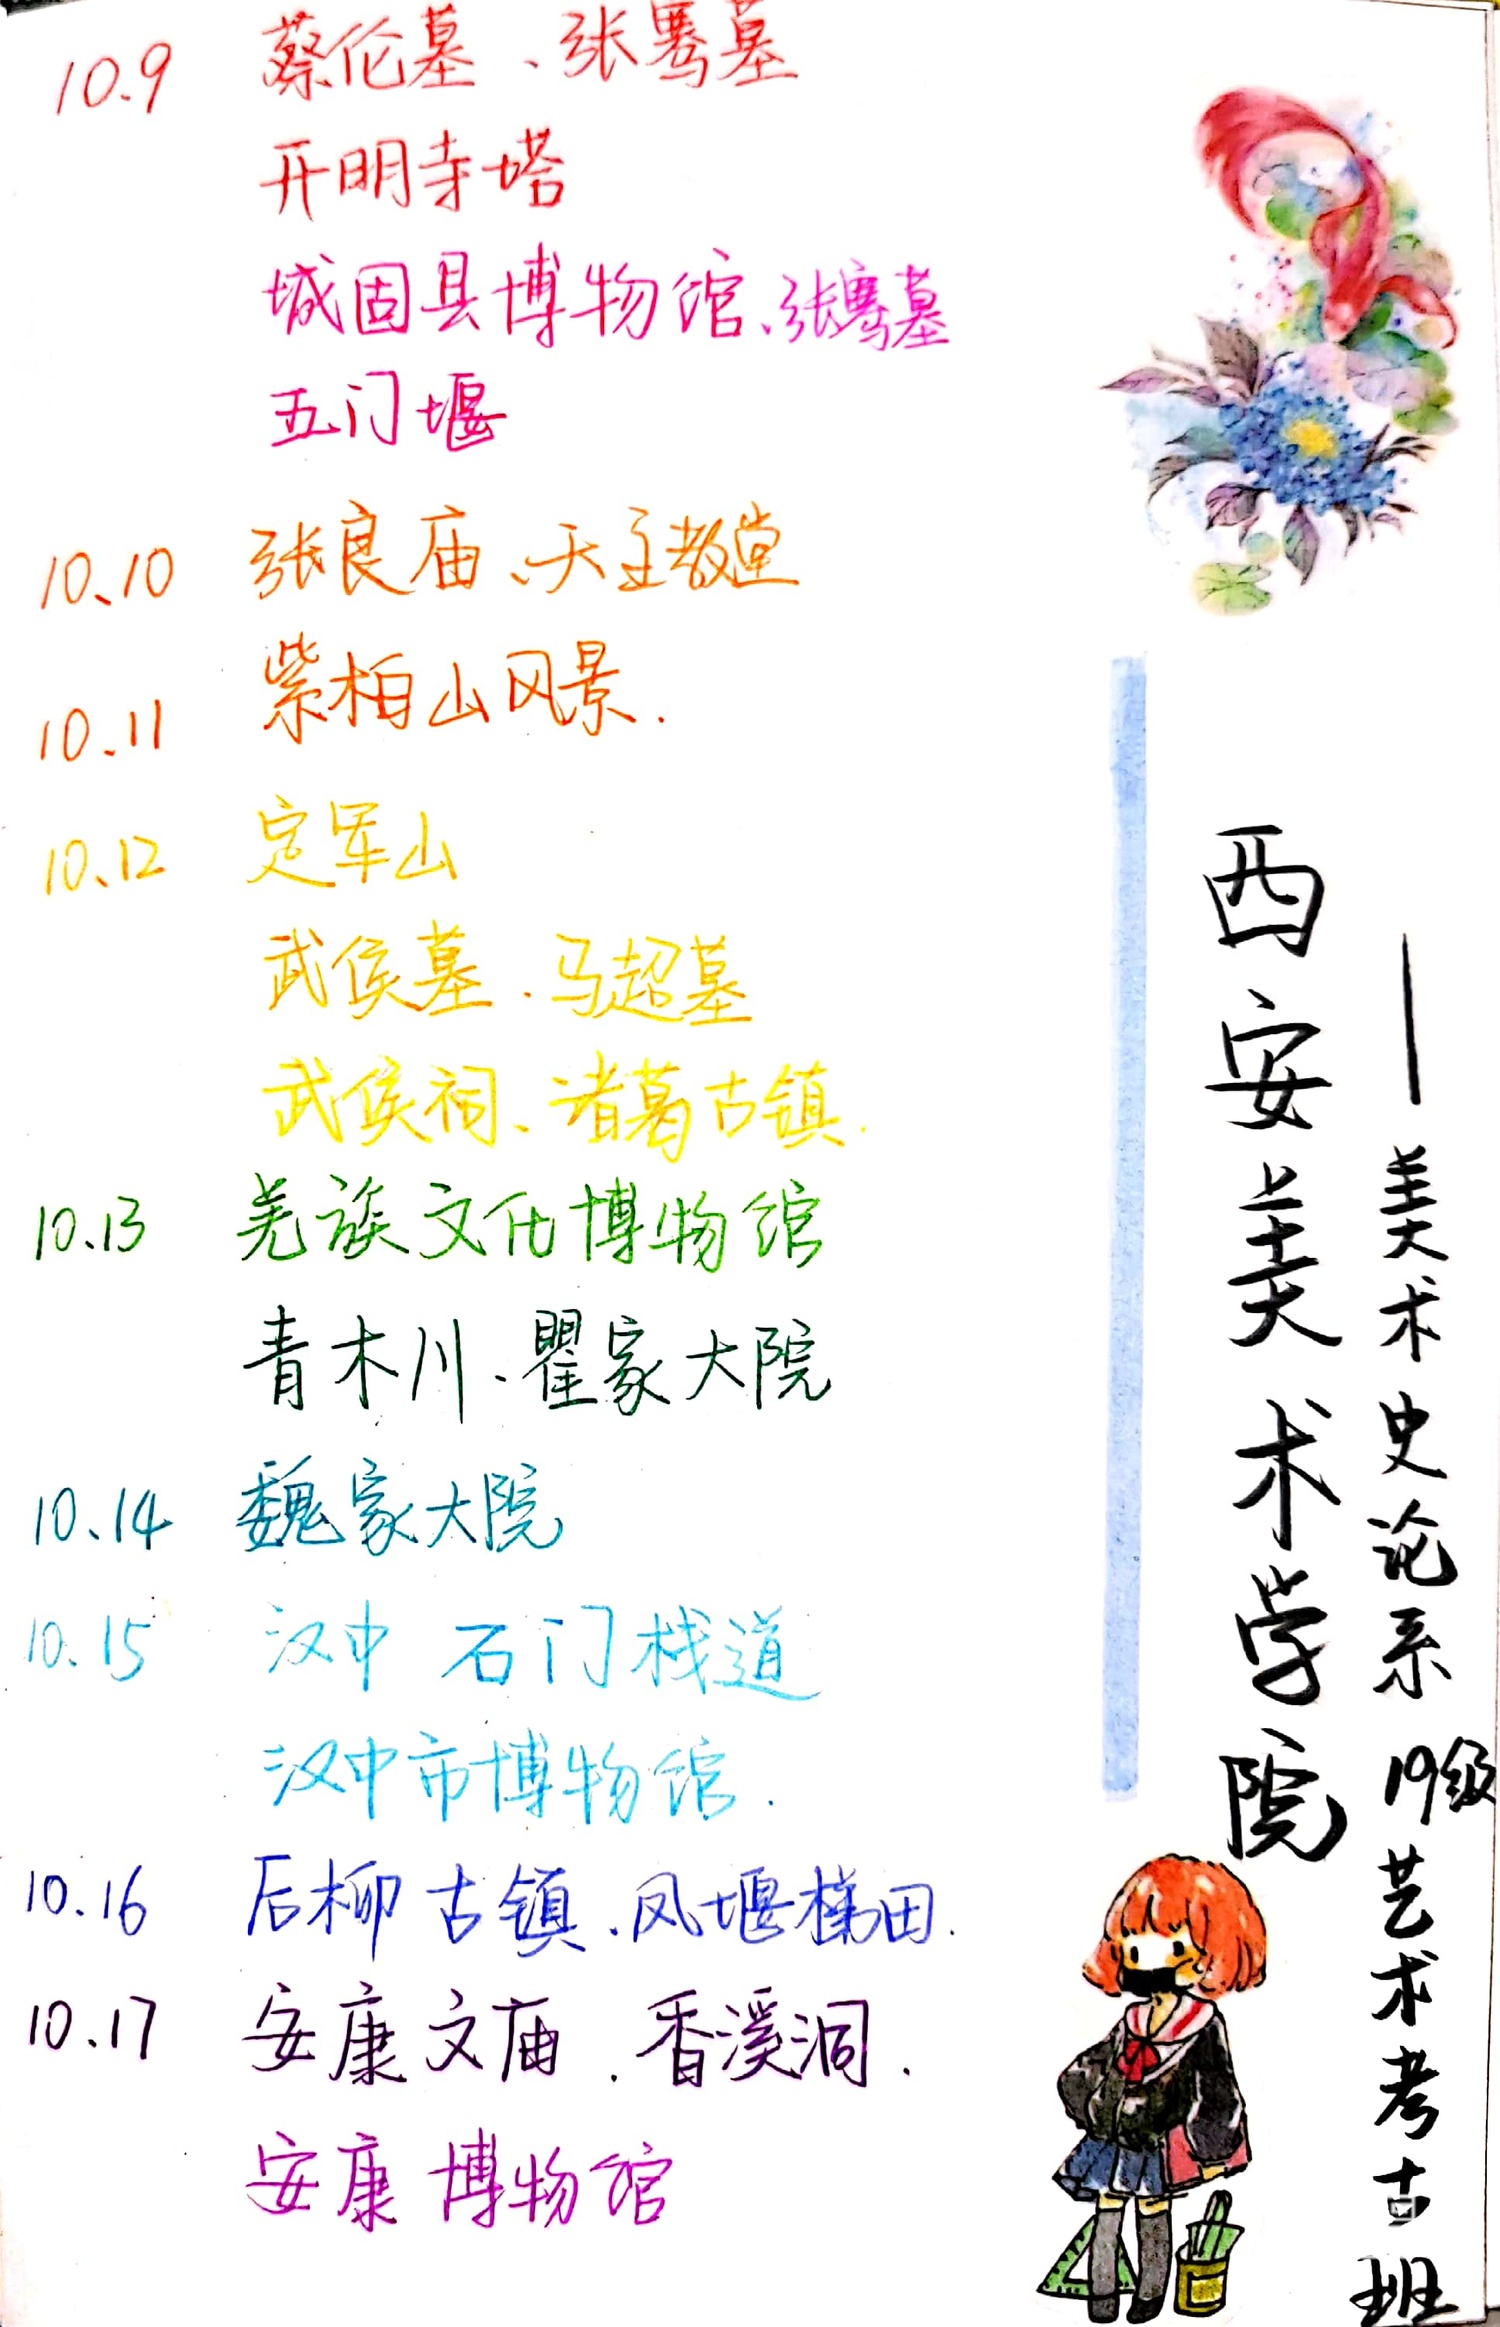 10.9 蔡伦墓、张骞墓
开明寺塔
城固县博物馆、张骞墓
五门堰
10.10 张良庙、天主教堂
10.11 紫柏山风景.
10.12 定军山
武侯墓.马超墓
武侯祠、诸葛古镇.
10.13 羌族文化博物馆
青木川.瞿家大院
10.14 魏家大院
10.15 汉中 石门栈道
汉中市博物馆.
10.16 后柳古镇.凤堰梯田.
10.17 安康文庙.香溪洞.
安康博物馆
西安美术学院
——美术史论系 19级艺术考古班